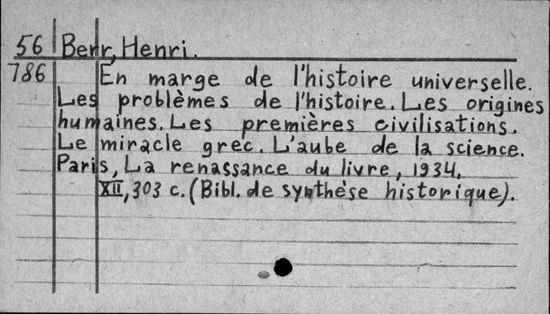 56 Berr, Henri.
786 En marge de l'histoire universelle.
Les problèmes de l'histoire. Les origines
humaines. Les premières civilisations.
Le miracle grec. L'aube de la science.
Paris, La renassance du livre, 1934.
XII, 303 c. (Bibl. de synthèse historique).